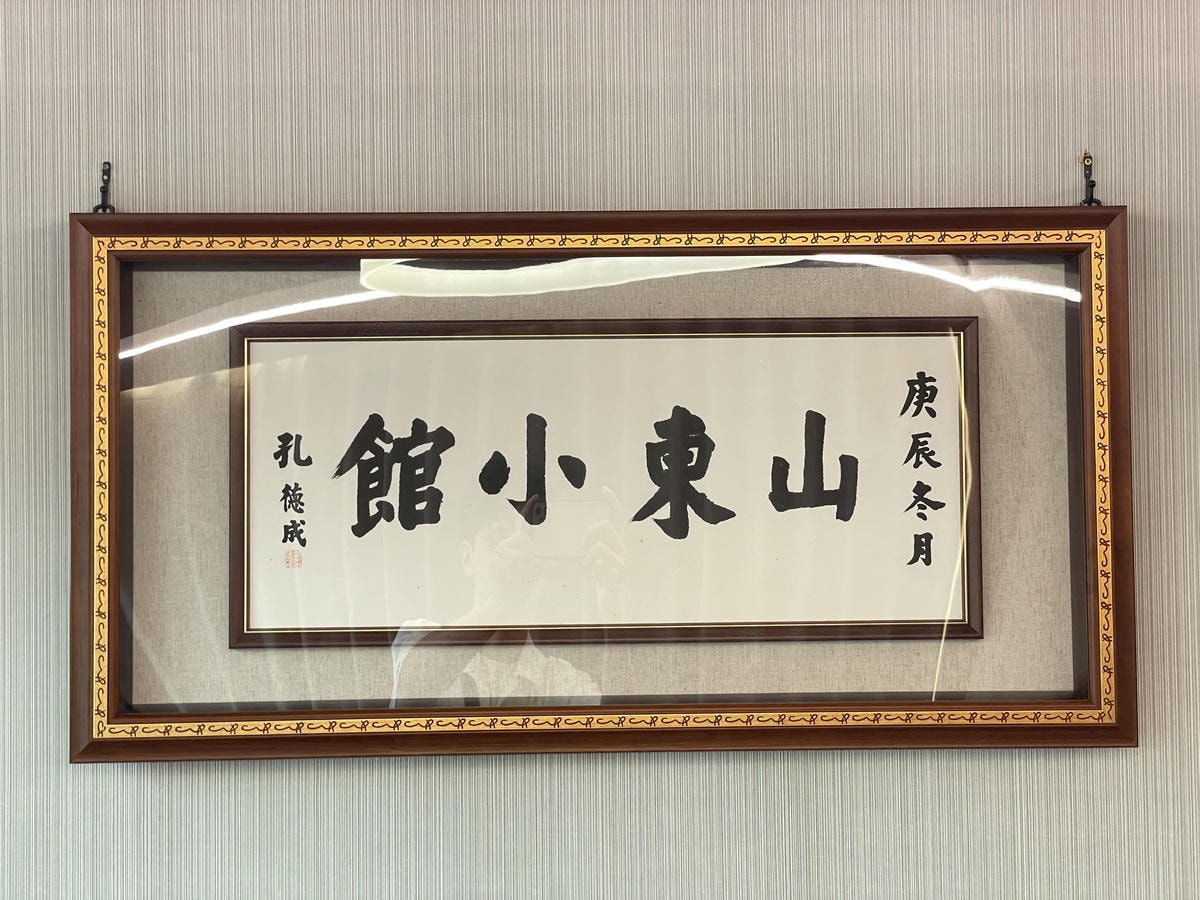 庚辰冬月
山東小館
孔德成